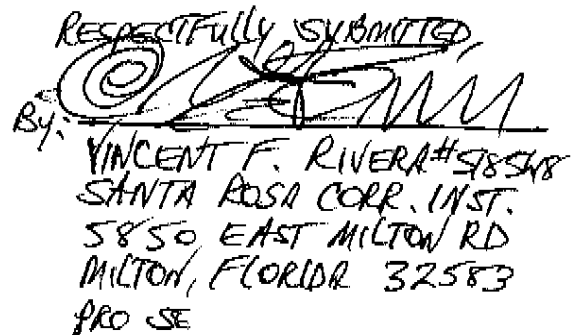 RESPECTFULLY SUBMITTED,
By:
VINCENT F. RIVERA #518548
SANTA ROSA CORR. INST.
5850 EAST MILTON RD
MILTON, FLORIDA 32583
PRO SE